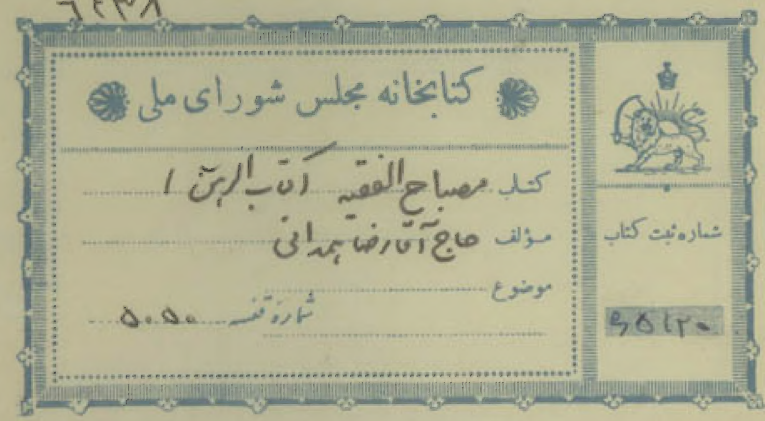 کتابخانه مجلس شورای ملی
کتاب مصباح الفقیه (کتاب الرهن)
مؤلف حاج آقا رضا همدانی
موضوع
شماره قفسه ۵۰۵۰
شماره ثبت کتاب